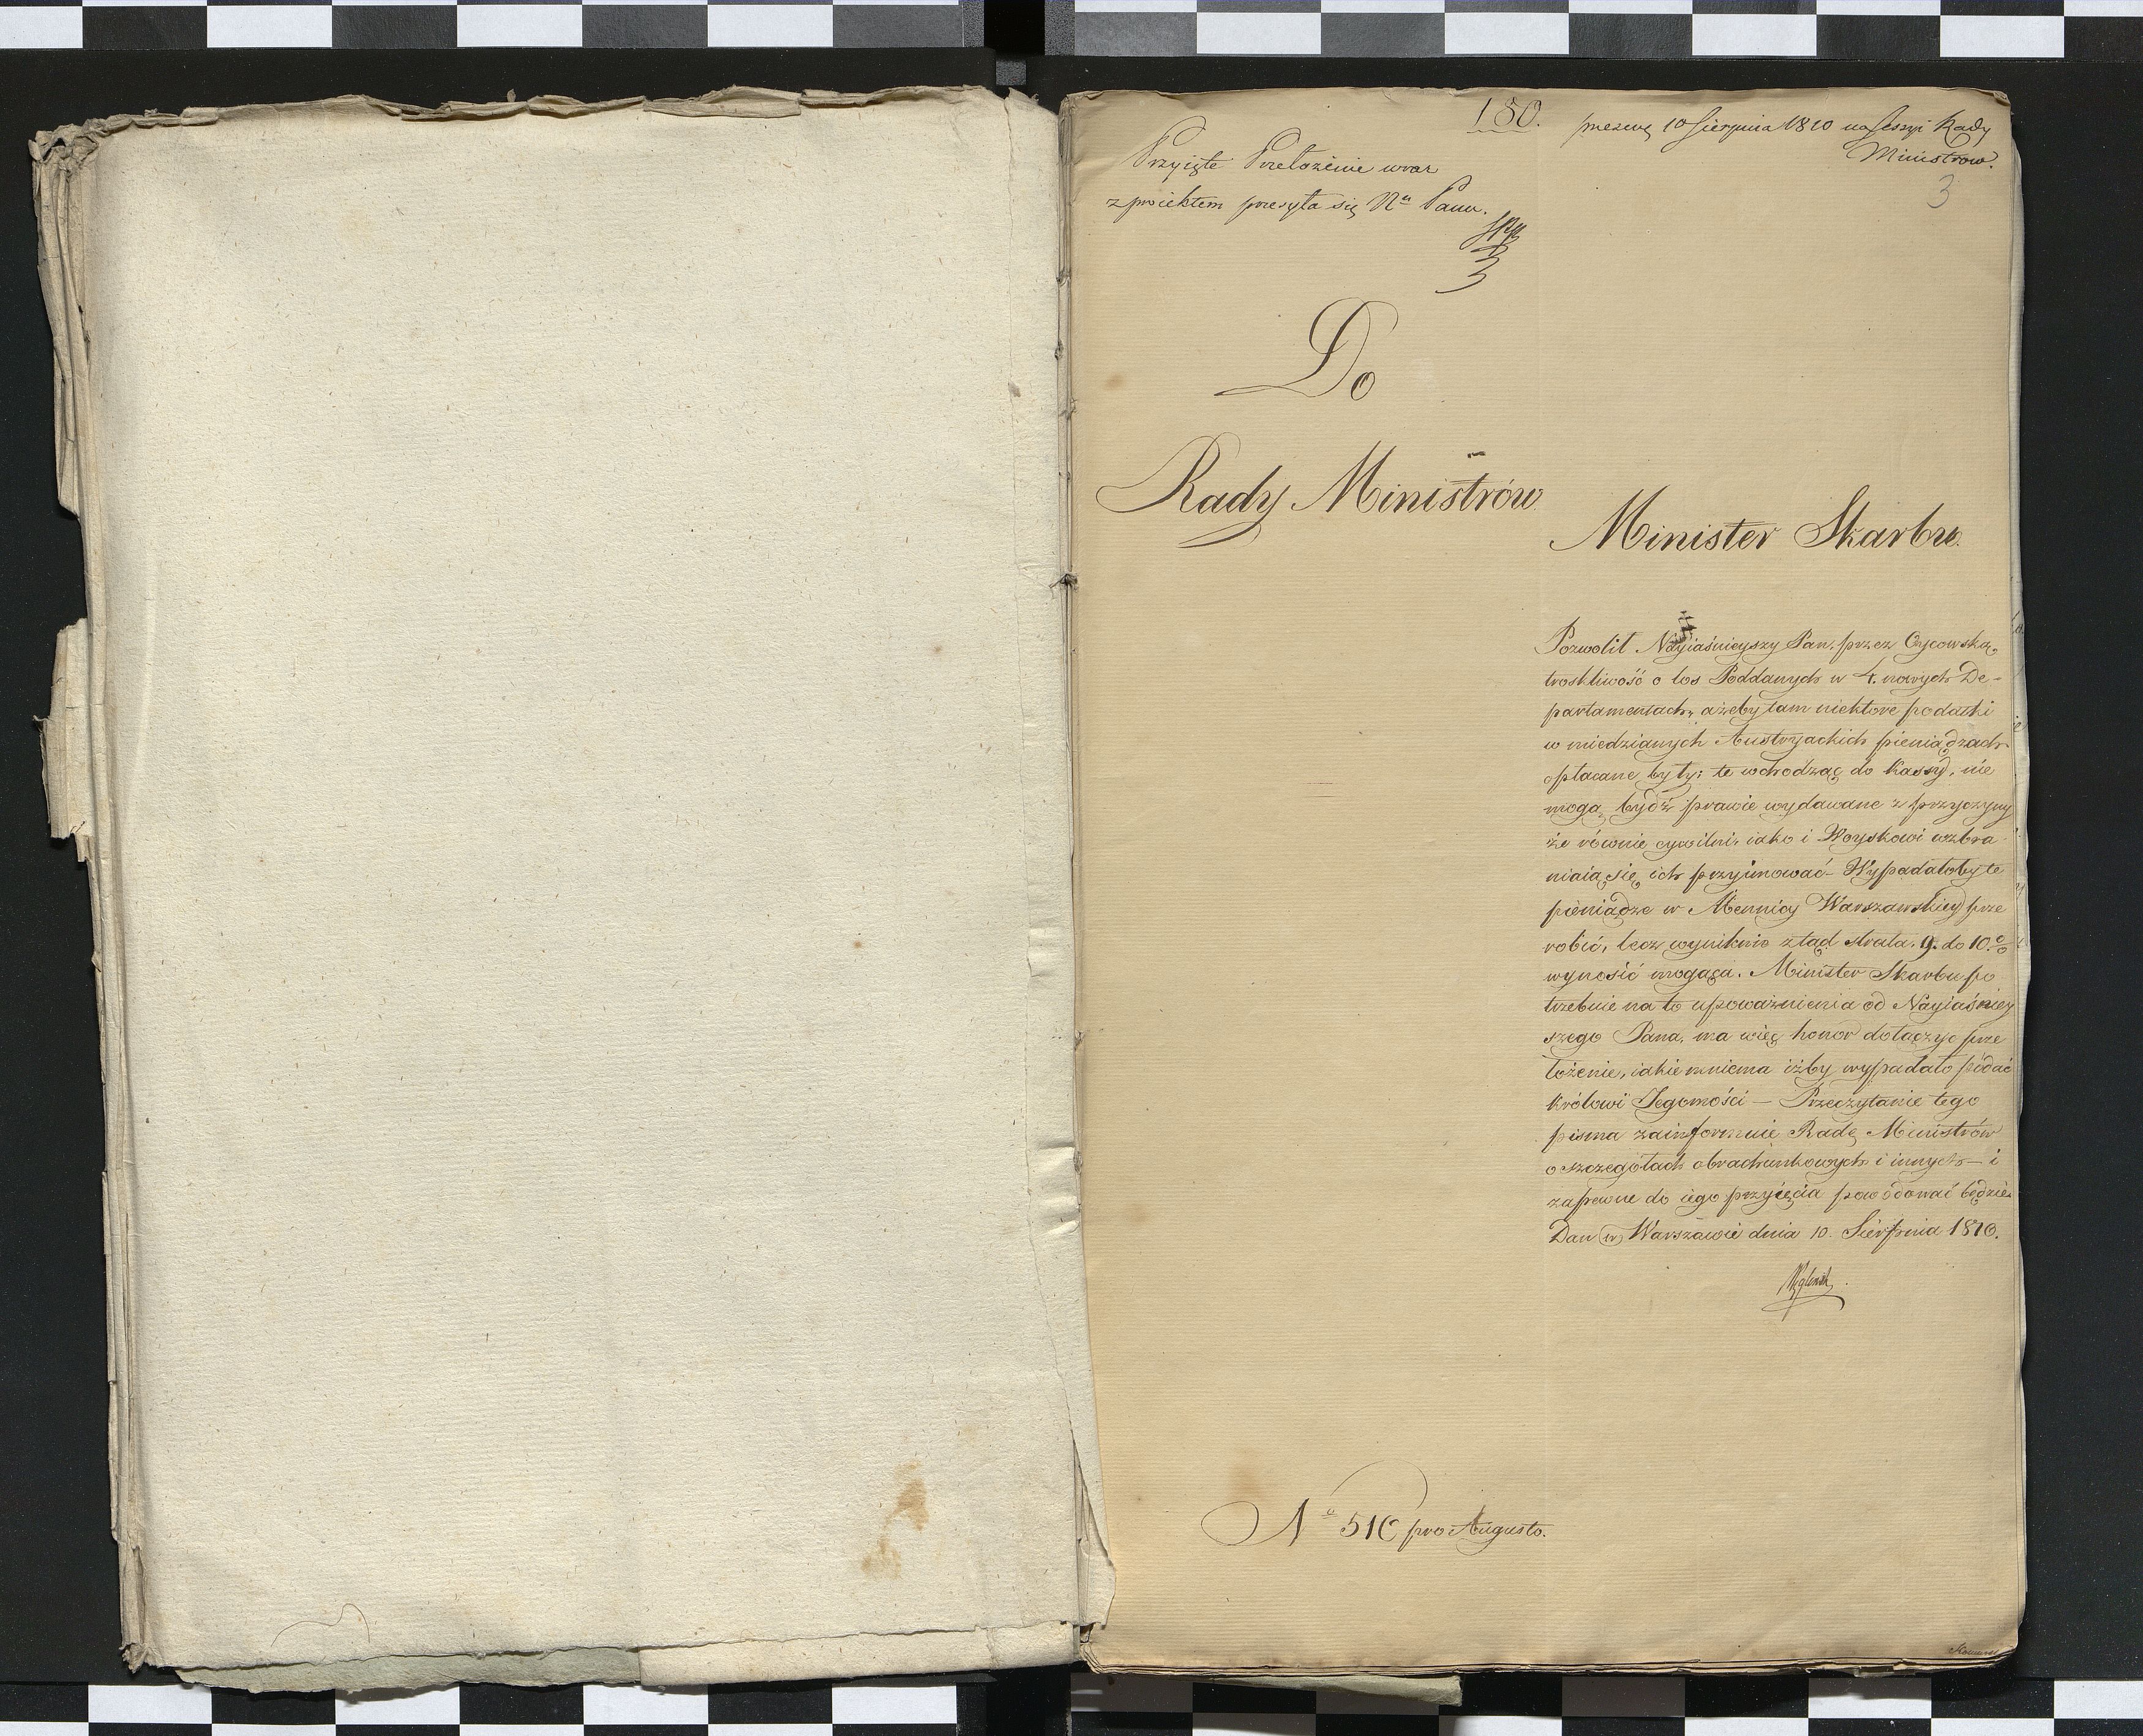 180.
10 Sierpnia 1810 na Sessyi Rady
Ministrow.
3
Przyięte Przełożenie wraz
z proiektem przesyła się Nu Panu.
Do
Rady Ministrów
Minister Skarbu.
Pozwolił Nayiaśnieyszy Pan, przez Oycowską
troskliwość o los Poddanych w 4. nowych De-
partamentach, ażeby tam niektore podatki
w miedzianych Austryackich pieniądzach
opłacane były; te wchodząc do Kassy, nie
mogą bydź prawie wydawane z przyczyny
że równie cywilni, iako i Woyskowi wzbra-
niaią się ich przyimować – Wypadałoby te
pieniądze w Mennicy Warszawskiey prze
robić, lecz wyniknie ztąd strata, 9. do 10. %
wynosić mogąca. Minister Skarbu po
trzebuie na to upoważnienia od Nayiaśniey
szego Pana, ma więc honor dołączyc prze
łożenie, iakie mniema iżby wypadało podać
Królowi Jegomości — Przeczytanie tego
pisma zainformuie Radę Ministrów
o szczegółach obrachunkowych i innych — i
zapewne do iego przyięcia powodować będzie.
Dan w Warszawie dnia 10. Sierpnia 1810.
Węgleński
No 516 pro Augusto.